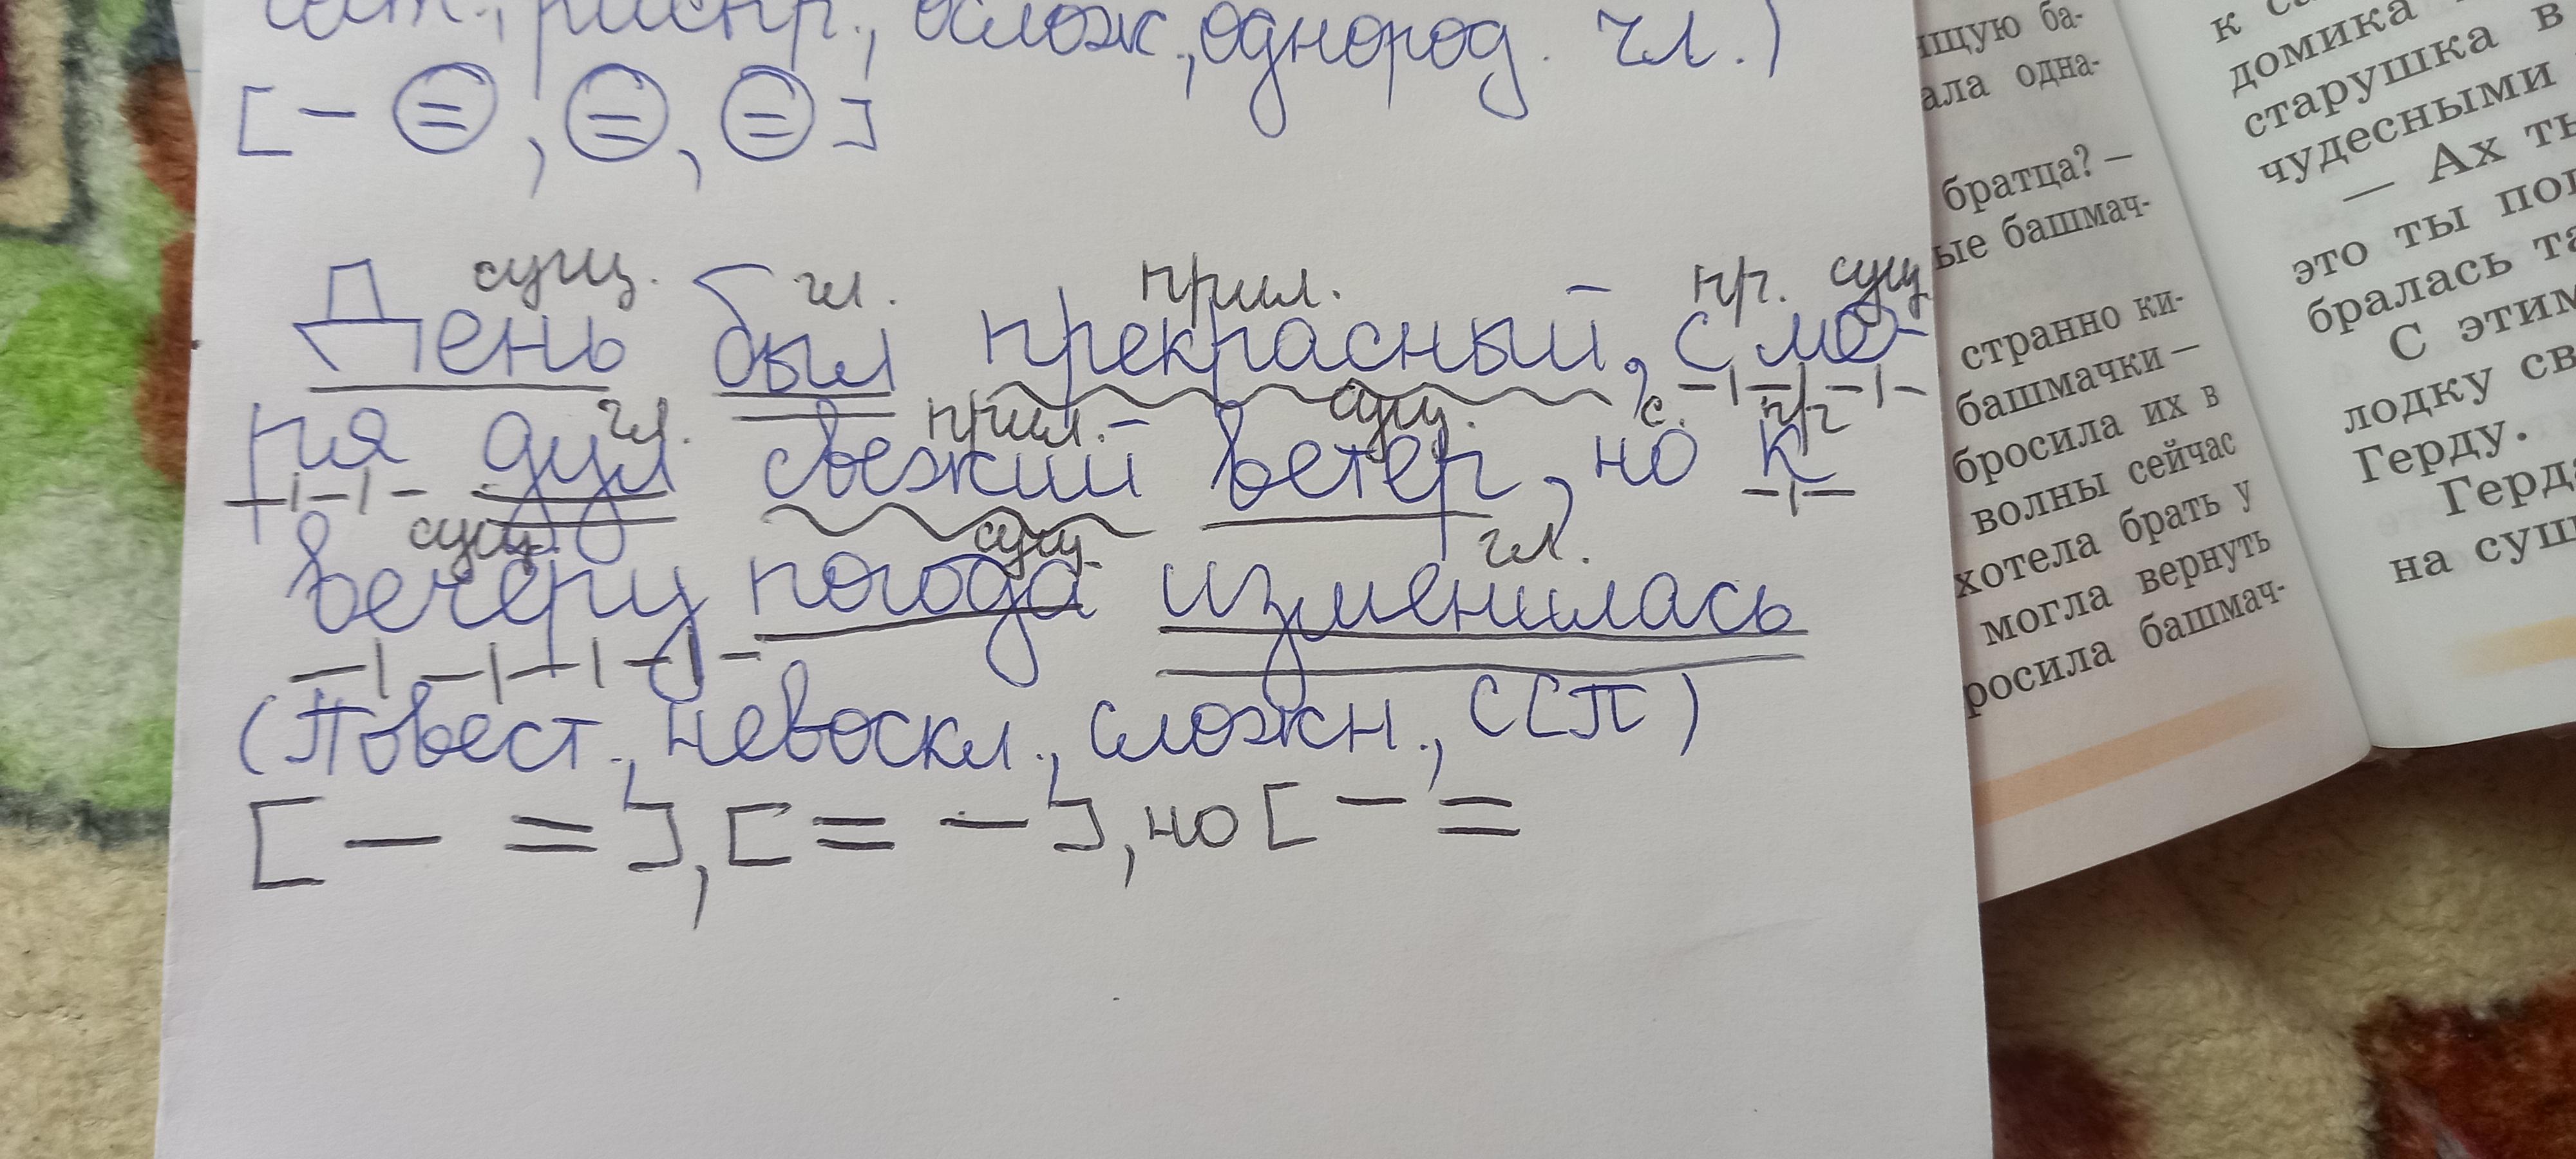 , распр., ослож., однород. чл.)
[– =, =, =]
сущ. гл. прил. пр. сущ
День был прекрасный, с мо-
гл. прил. сущ. с. пр
ря дул свежий ветер, но к
сущ. сущ. гл.
вечеру погода изменилась
(Повест., невоскл., сложн., ССП)
[– =], [= –], но [– =
ищую ба-
ала одна-
братца? –
ые башмач-
странно ки-
башмачки –
бросила их в
волны сейчас
хотела брать у
могла вернуть
росила башмач-
к
домика
старушка в
чудесными
– Ах ты
это ты
бралась
С этим
лодку
Герду.
Герда
на